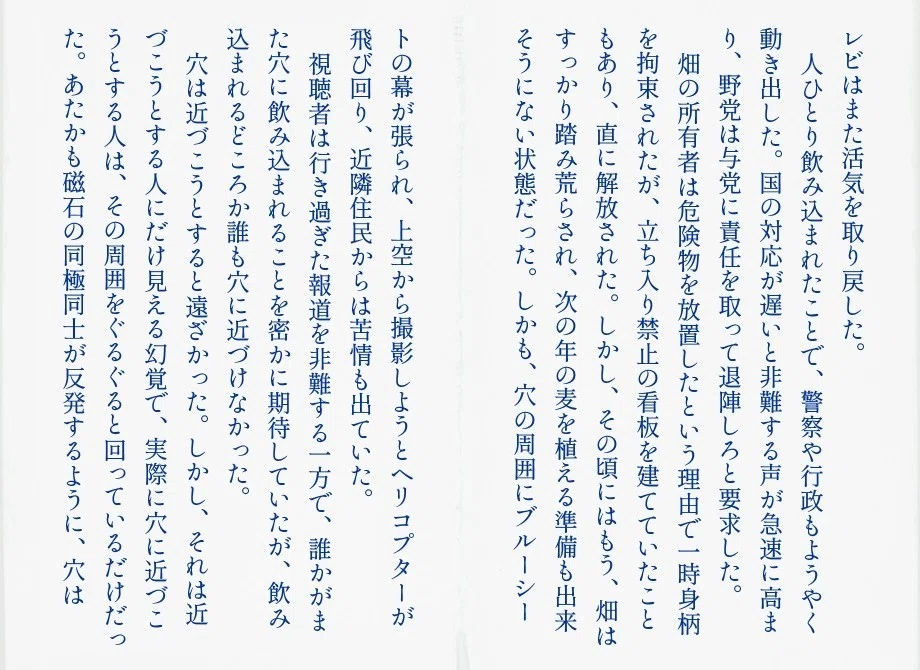 レビはまた活気を取り戻した。
　人ひとり飲み込まれたことで、警察や行政もようやく
動き出した。国の対応が遅いと非難する声が急速に高ま
り、野党は与党に責任を取って退陣しろと要求した。
　畑の所有者は危険物を放置したという理由で一時身柄
を拘束されたが、立ち入り禁止の看板を建てていたこと
もあり、直に解放された。しかし、その頃にはもう、畑は
すっかり踏み荒らされ、次の年の麦を植える準備も出来
そうにない状態だった。しかも、穴の周囲にブルーシー
トの幕が張られ、上空から撮影しようとヘリコプターが
飛び回り、近隣住民からは苦情も出ていた。
　視聴者は行き過ぎた報道を非難する一方で、誰かがま
た穴に飲み込まれることを密かに期待していたが、飲み
込まれるどころか誰も穴に近づけなかった。
　穴は近づこうとすると遠ざかった。しかし、それは近
づこうとする人にだけ見える幻覚で、実際に穴に近づこ
うとする人は、その周囲をぐるぐると回っているだけだっ
た。あたかも磁石の同極同士が反発するように、穴は